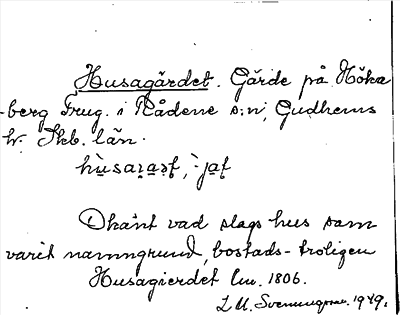 Husagärdet. Gärde på Höka
-berg Frug. i Rådene s:n, Gudhems
hr. Skb. län.
Okänt vad slags hus som
varit namngrund, bostads- troligen
Husagierdet lm. 1806.
1949.